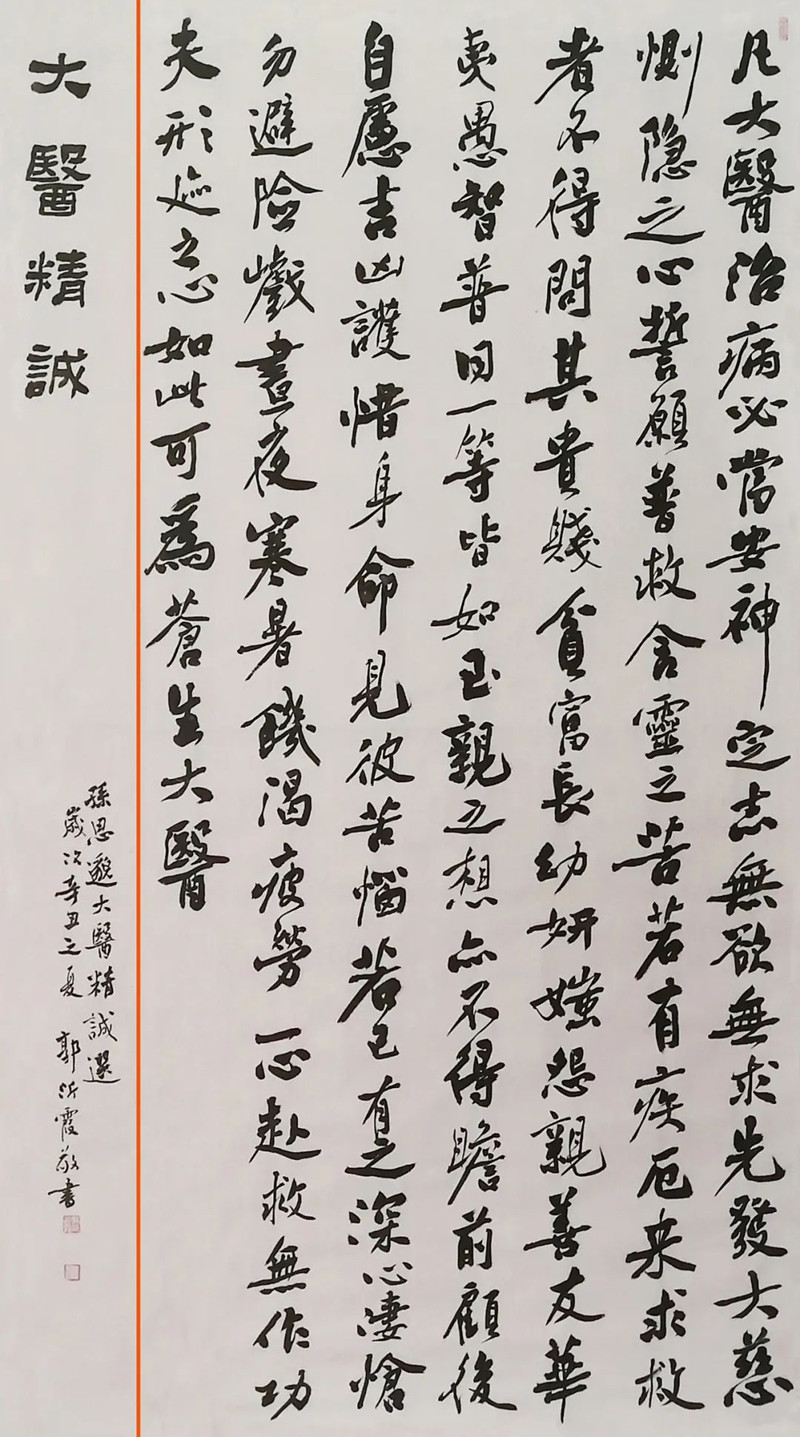 凡大醫治病必當安神定志無欲無求先發大慈
惻隐之心誓願普救含靈之苦若有疾厄来求救
者不得問其貴賤貧富長幼妍媸怨親善友華
夷愚智普同一等皆如至親之想亦不得瞻前顧後
自慮吉凶護惜身命見彼苦惱若己有之深心淒愴
勿避險巇晝夜寒暑饑渴疲勞一心赴救無作功
夫形迹之心如此可為蒼生大醫
大醫精誠
孫思邈大醫精誠選
歲次辛丑之夏 郭沂霞敬書